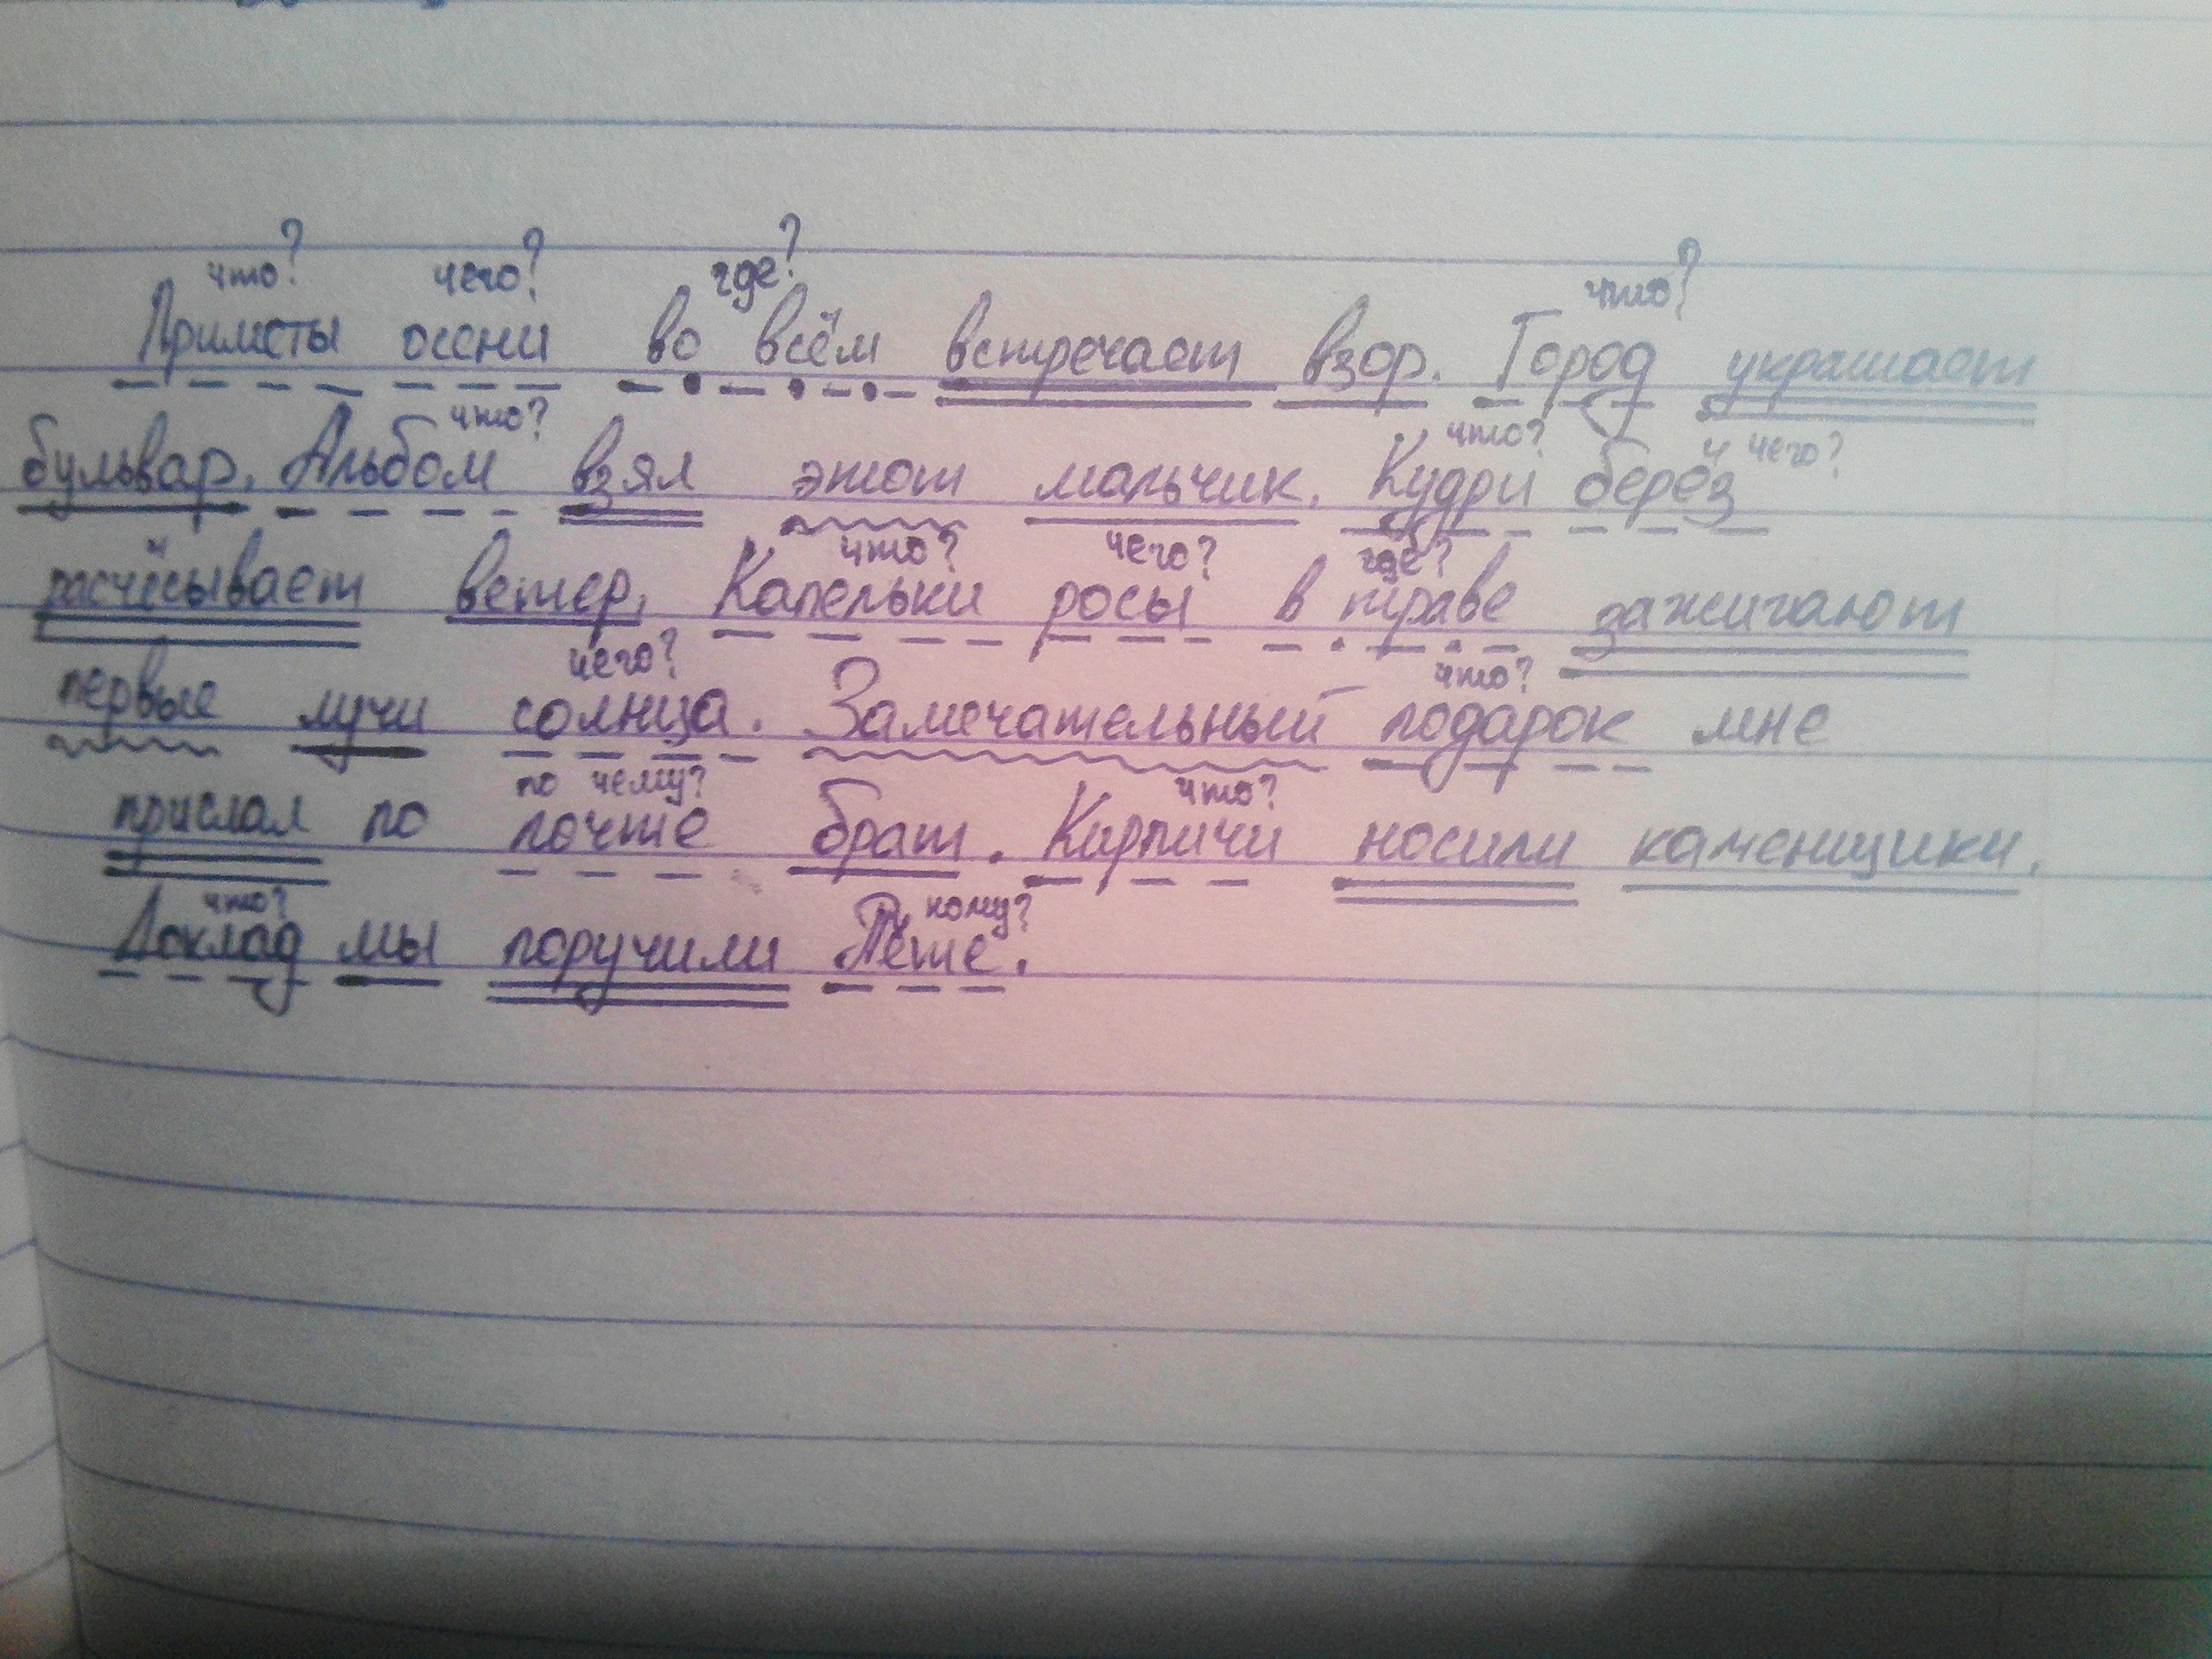 что? чего? где? что?
Приметы осени во всём встречает взор. Город украшает
что? что? чего?
бульвар. Альбом взял этот мальчик. Кудри берёз
что? чего? где?
расчёсывает ветер. Капельки росы в траве зажигают
чего? что?
первые лучи солнца. Замечательный подарок мне
по чему? что?
прислал по почте брат. Кирпичи носили каменщики.
что? кому?
Доклад мы поручили Пете.